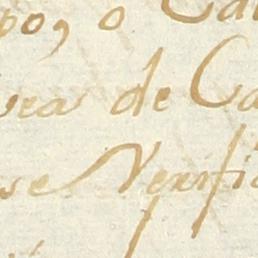 po, o Ca
vea de Ca
se Verifi